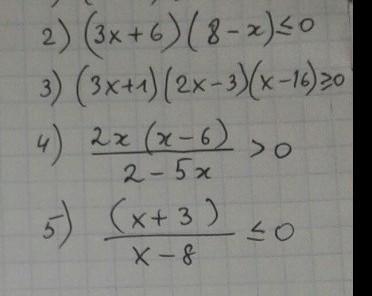 2) (3x+6)(8-x)≤0
3) (3x+1)(2x-3)(x-16)≥0
4) 2x(x-6)
2-5x
>0
5) (x+3)
x-8
≤0